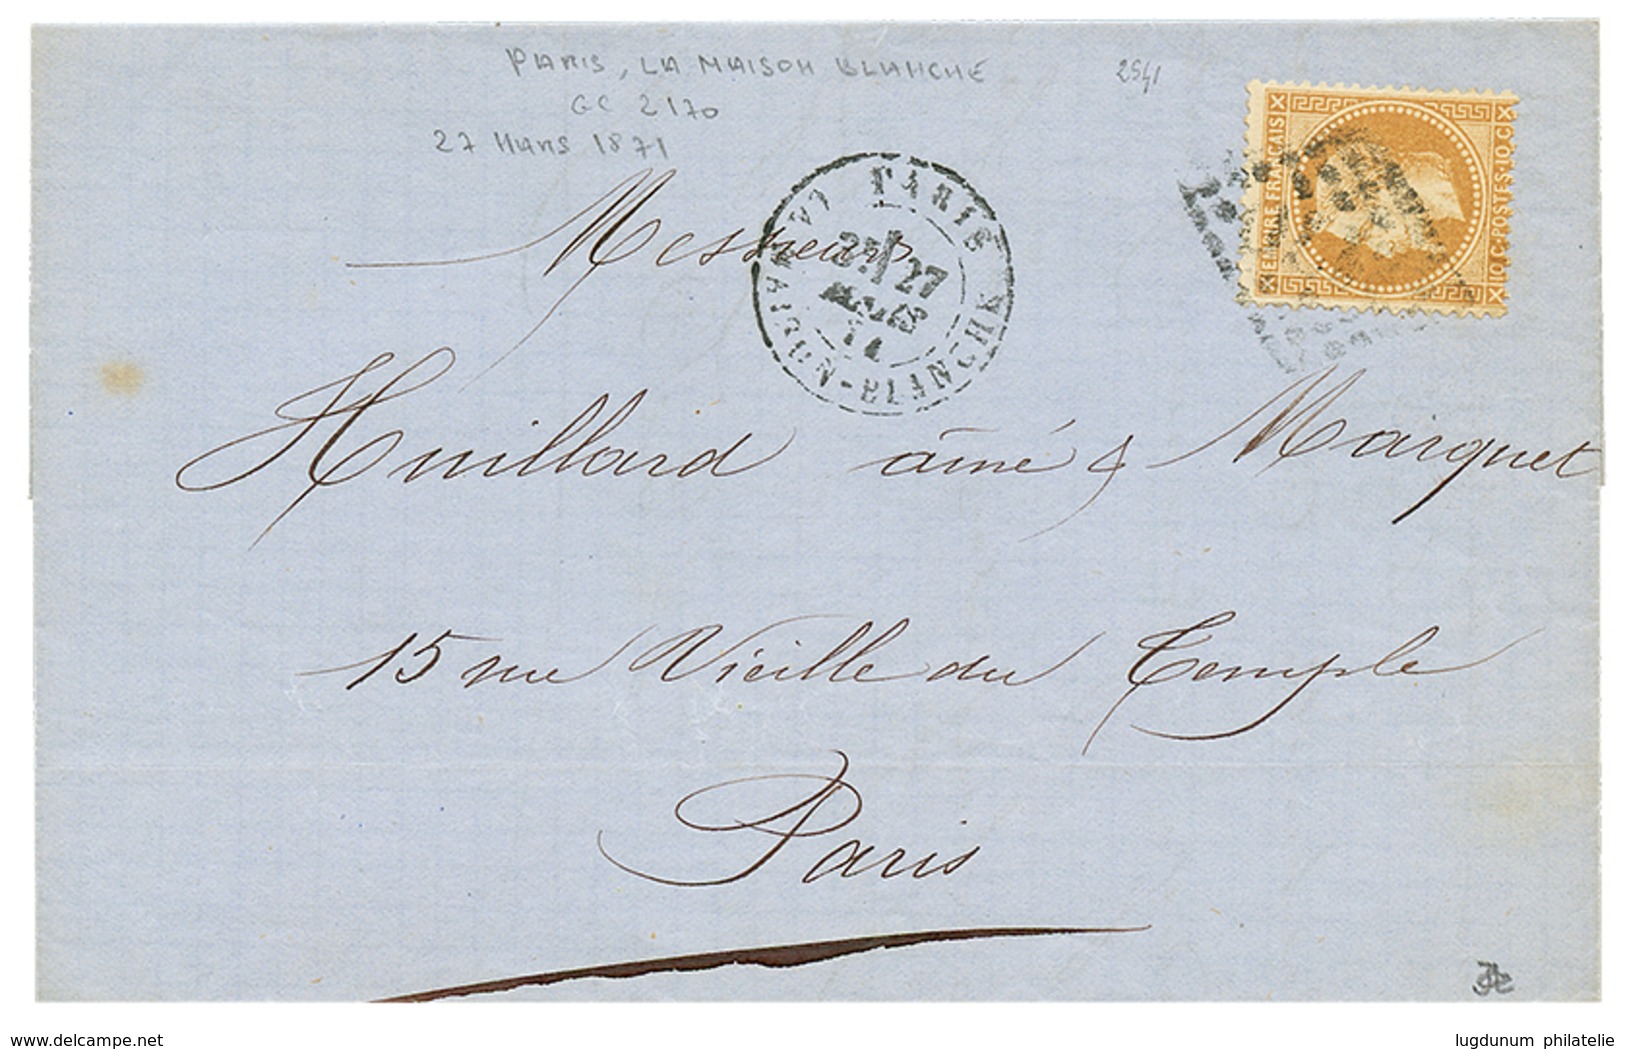 PARIS, LA MAISON BLANCHE
2541
GC 2170
27 Mars 1871
EMPIRE FRANÇAIS
10.C.POSTES.10.C
PARIS LA MAISON-BLANCHE
27
MARS
71
Messieurs
Huillard aîné & Maiquet
15 rue Vieille du Temple
Paris
www.delcampe.net
lugdunum philatelie